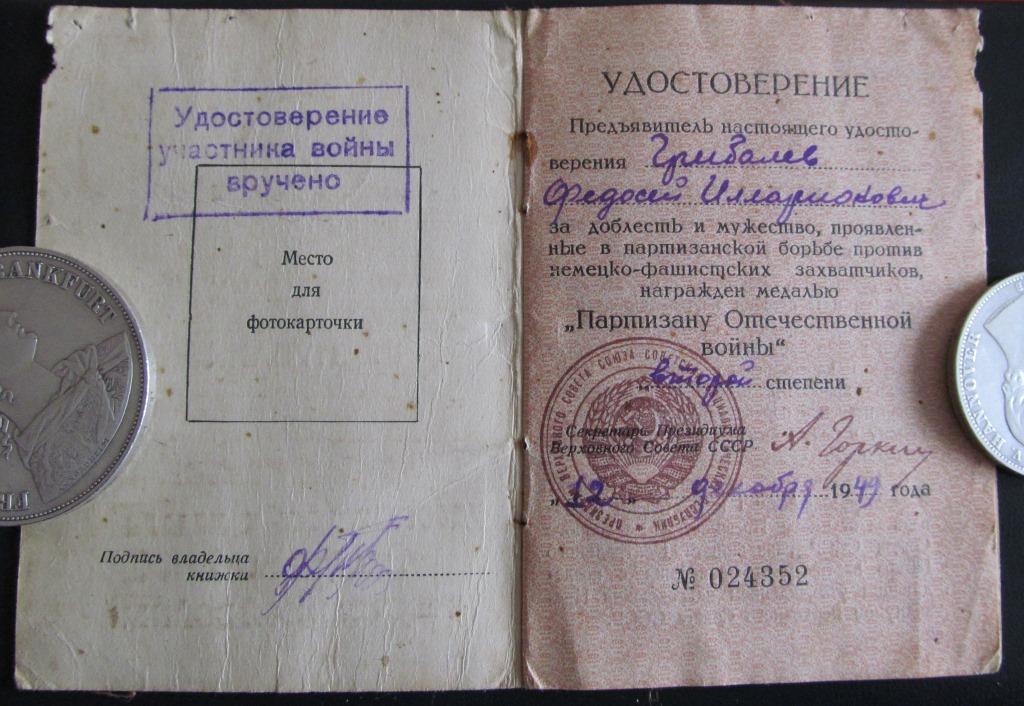 Удостоверение
участника войны
вручено
Место
для
фотокарточки
Подпись владельца
книжки
УДОСТОВЕРЕНИЕ
Предъявитель настоящего удосто-
верения Грибалев
Федосей Илларионович
за доблесть и мужество, проявлен-
ные в партизанской борьбе против
немецко-фашистских захватчиков,
награжден медалью
„Партизану Отечественной
войны“
„второй степени
Секретарь Президиума
Верховного Совета СССР А. Горкин
„12„ декабря 1949 года
№ 024352
FRANKFURT
HANNOVER